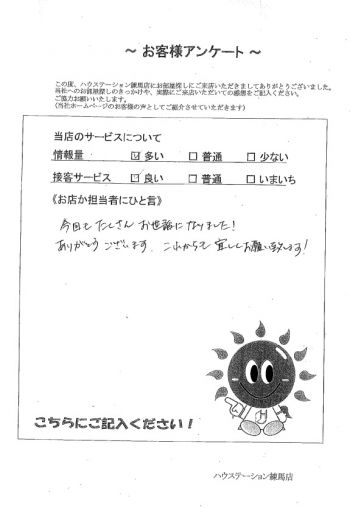 ～ お客様アンケート ～
この度、ハウステーション練馬店にお部屋探しにご来店いただきましてありがとうございました。
当社へのお部屋探しのきっかけや、実際にご来店いただいての感想をご記入ください。
ご協力お願いいたします。
(当社ホームページのお客様の声としてご紹介させていただきます)
当店のサービスについて
情報量 ☑ 多い □ 普通 □ 少ない
接客サービス ☑ 良い □ 普通 □ いまいち
《お店か担当者にひと言》
今回もたくさんお世話になりました!
ありがとうございます。これからも宜しくお願い致します!
こちらにご記入ください!
ハウステーション練馬店